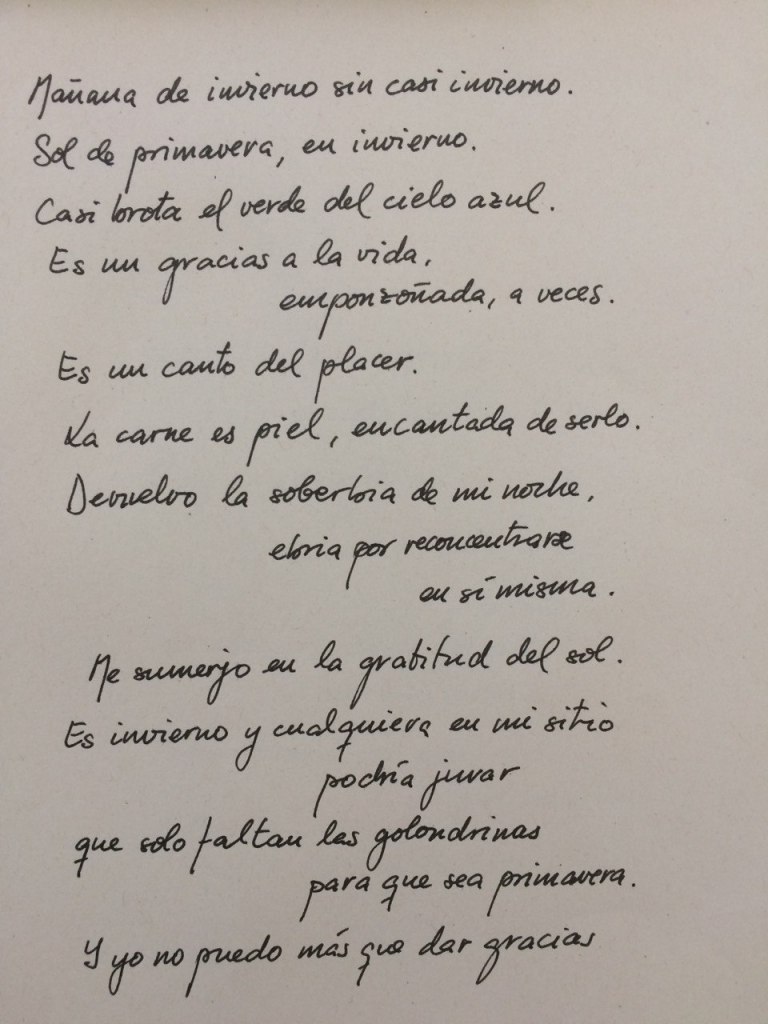 Mañana de invierno sin casi invierno.
Sol de primavera, en invierno.
Casi brota el verde del cielo azul.
Es un gracias a la vida,
emponzoñada, a veces.
Es un canto del placer.
La carne es piel, encantada de serlo.
Devuelvo la soberbia de mi noche,
ebria por reconcentrarse
en sí misma.
Me sumerjo en la gratitud del sol.
Es invierno y cualquiera en mi sitio
podría jurar
que solo faltan las golondrinas
para que sea primavera.
Y yo no puedo más que dar gracias